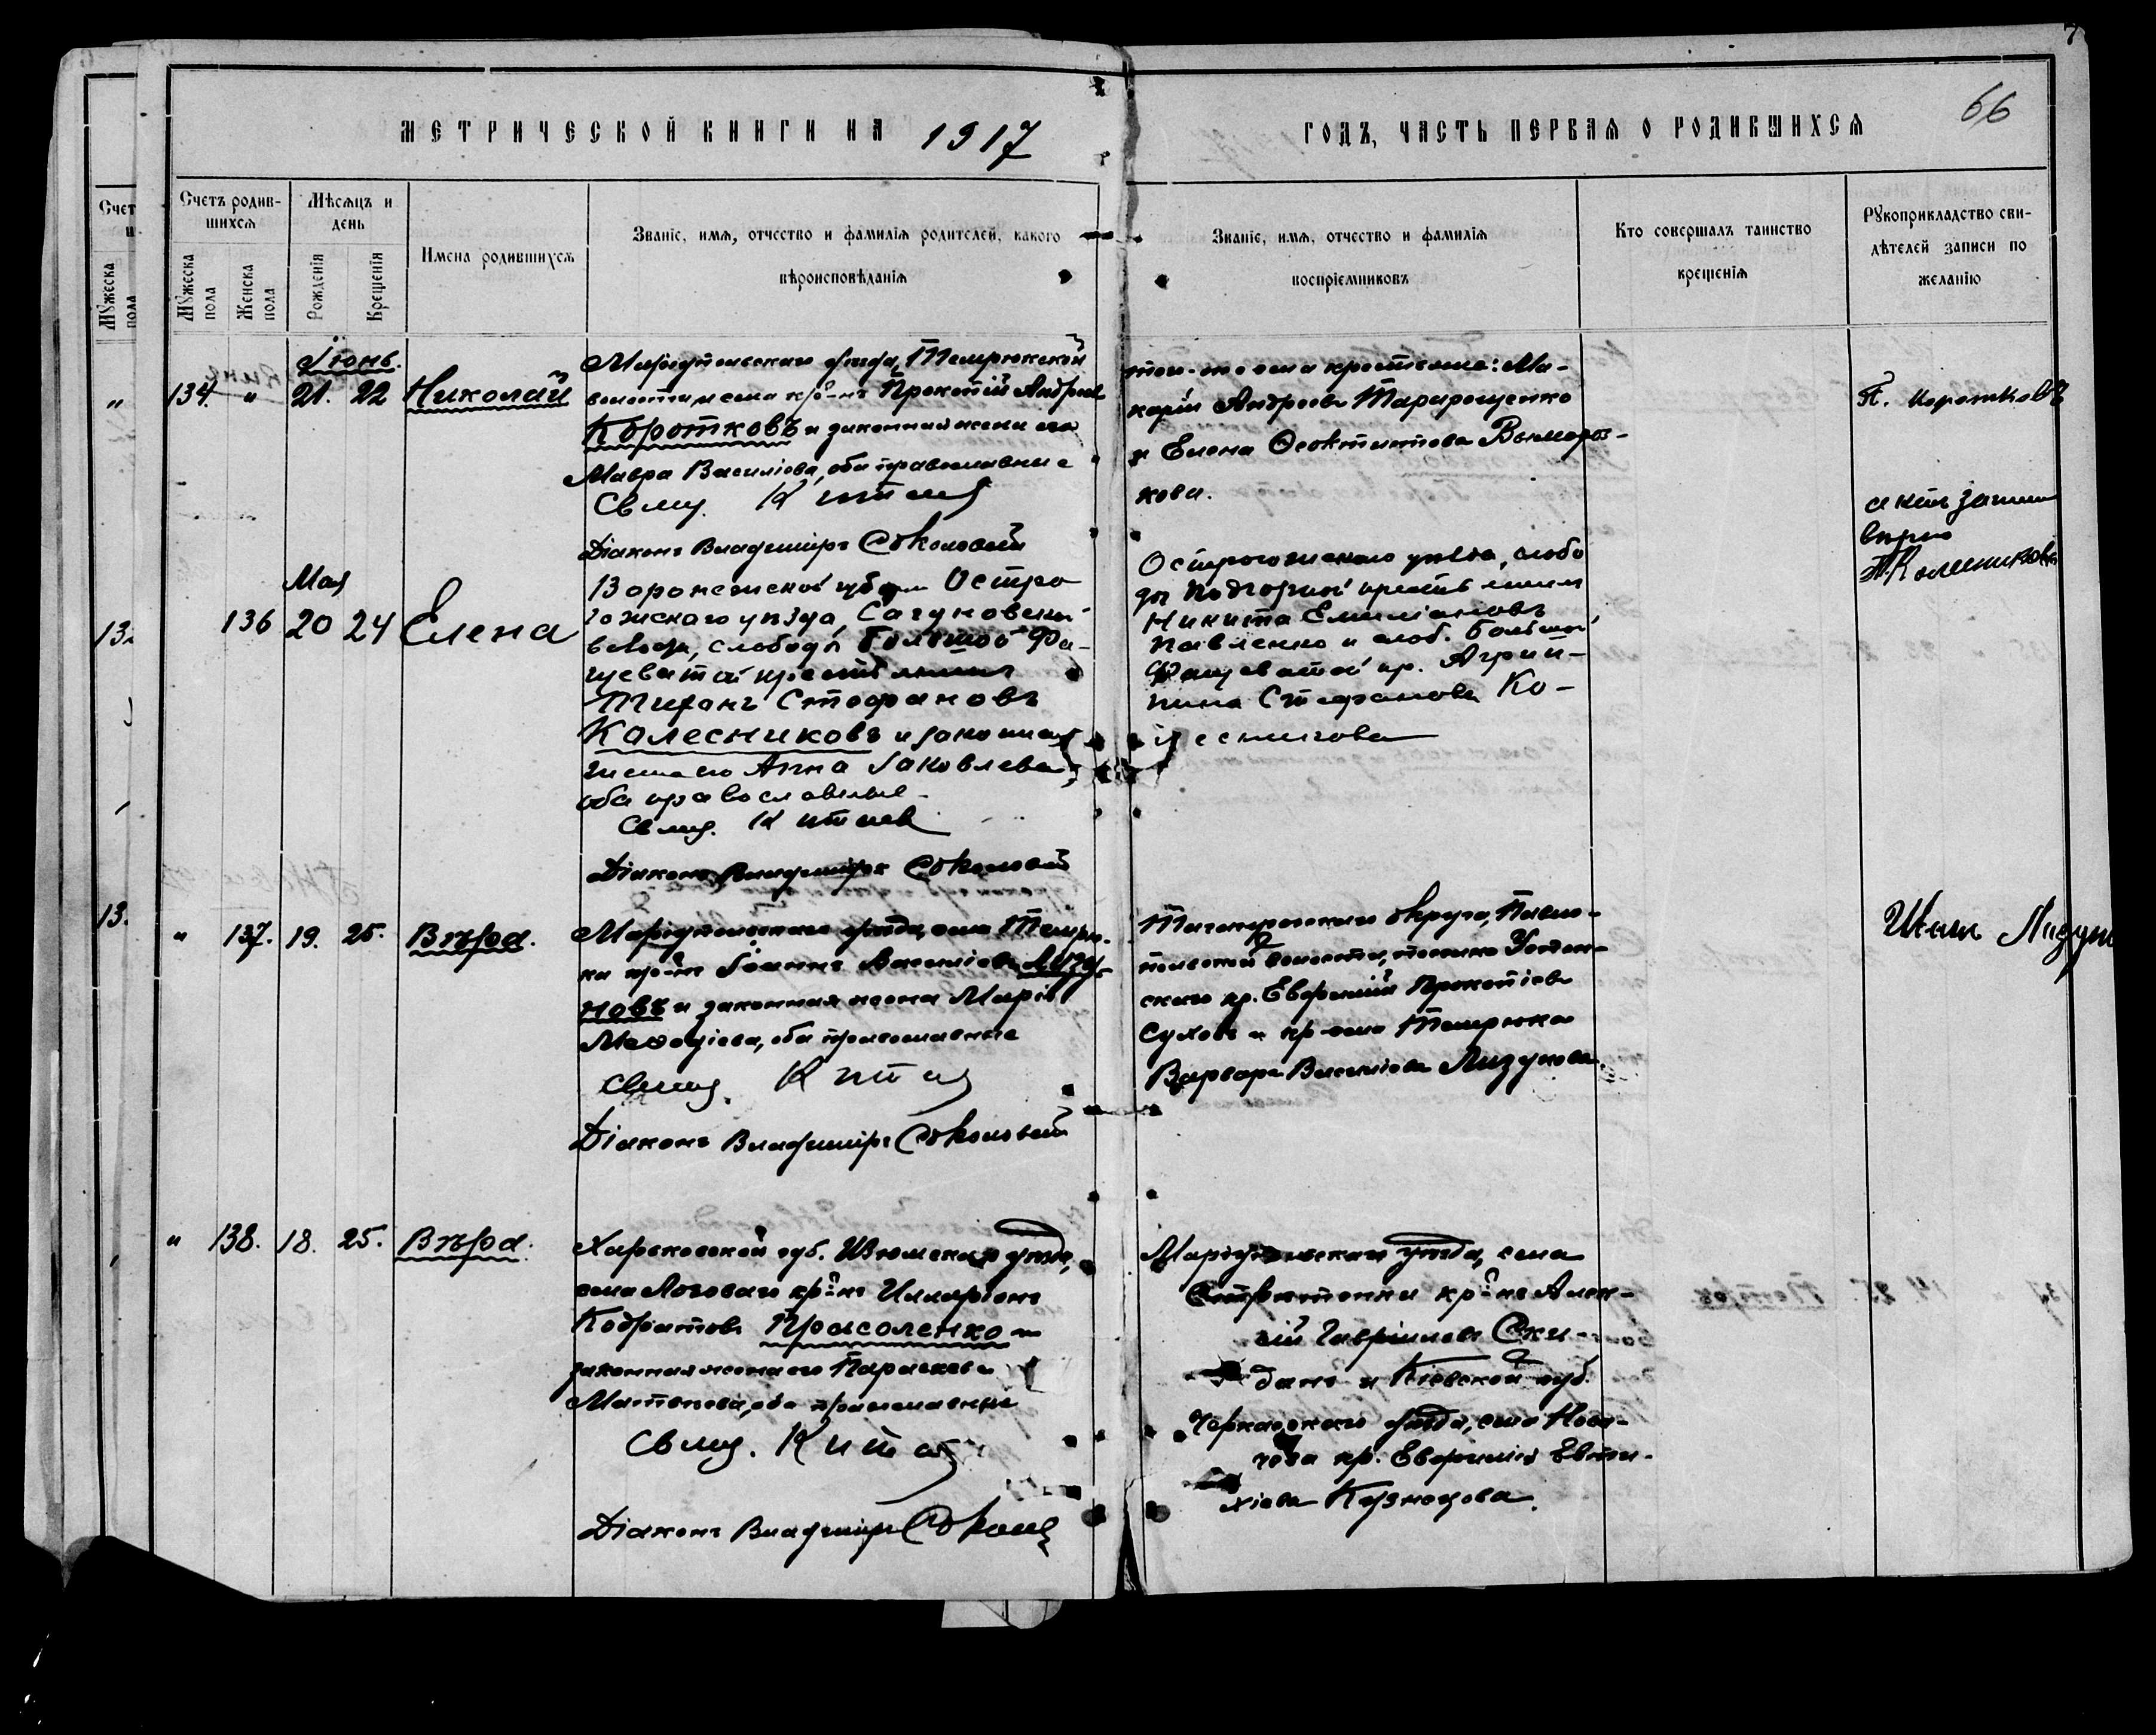 МЕТРИЧЕСКОЙ КНИГИ НА 1917
ГОДЪ, ЧАСТЬ ПЕРВАЯ О РОДИВШИХСЯ
66
Счетъ родив-
шихся
Мужеска
пола
Женска
пола
Мѣсяцъ и
день
Рожденія
Крещенія
Имена родившихся
Званіе, имя, отчество и фамилія родителей, какого
вѣроисповѣданія
Званіе, имя, отчество и фамилія
воспріемниковъ
Кто совершалъ таинство
крещенія
Рукоприкладство сви-
дѣтелей записи по
желанію
Іюнь.
134. " 21. 22 Николай
Маріупольскаго уѣзда, Темрюкской
волости, села кр-нъ Прокопій Андреевъ
Коротковъ и законная жена его
Мавра Василіева, оба православные
Свящ. Китай
Діаконъ Владиміръ Соколовскій
того-же села крестьяне: Ма-
карій Андреевъ
и Елена
кова.
П. Коротковъ
Мая
136 20 24 Елена
Воронежской губ. Остро
гожскаго уѣзда, Сагуновской
слободы Большой Фа-
щеватой крестьянинъ
Тихонъ Стефановъ
Колесниковъ и законная
жена его Анна Іаковлева,
оба православные
Свящ. Китай
Діаконъ Владиміръ Соколовскій
Острогожскаго уѣзда, слобо
ды Подгорной крестьянинъ
Никита Емиліановъ
Павленко и слоб. Большой
Фащеватой кр. Агрип-
пина Стефанова Ко-
лесникова
вѣрно
Т. Колесниковъ
" 137. 19. 25. Вѣра.
Маріупольскаго уѣзда, села Темрю-
ка кр-нъ Іоаннъ Василіевъ Лизу-
новъ и законная жена Марія
Меѳодіева, оба православные
Свящ. Китай
Діаконъ Владиміръ Соколовскій
Таганрогскаго округа, Павло-
польской волости, поселка Успен-
скаго кр. Евфимій Прокопіевъ
Суховъ и кр. села Темрюка
Варвара Василіева Лизунова.
" 138. 18. 25. Вѣра.
Харьковской губ. Изюмскаго уѣзда,
села Логоваго кр-нъ Илларіонъ
Кодратовъ Прасоленко и
законная жена его Параскева
Матвѣева, оба православные
Свящ. Китай
Діаконъ Владиміръ
Маріупольскаго уѣзда, села
кр-нъ Алек-
сій Гавріиловъ Ски-
данъ и Кіевской губ.
Черкасскаго уѣзда, села
кр. Евфимія Евти-
хіева Кузнецова.